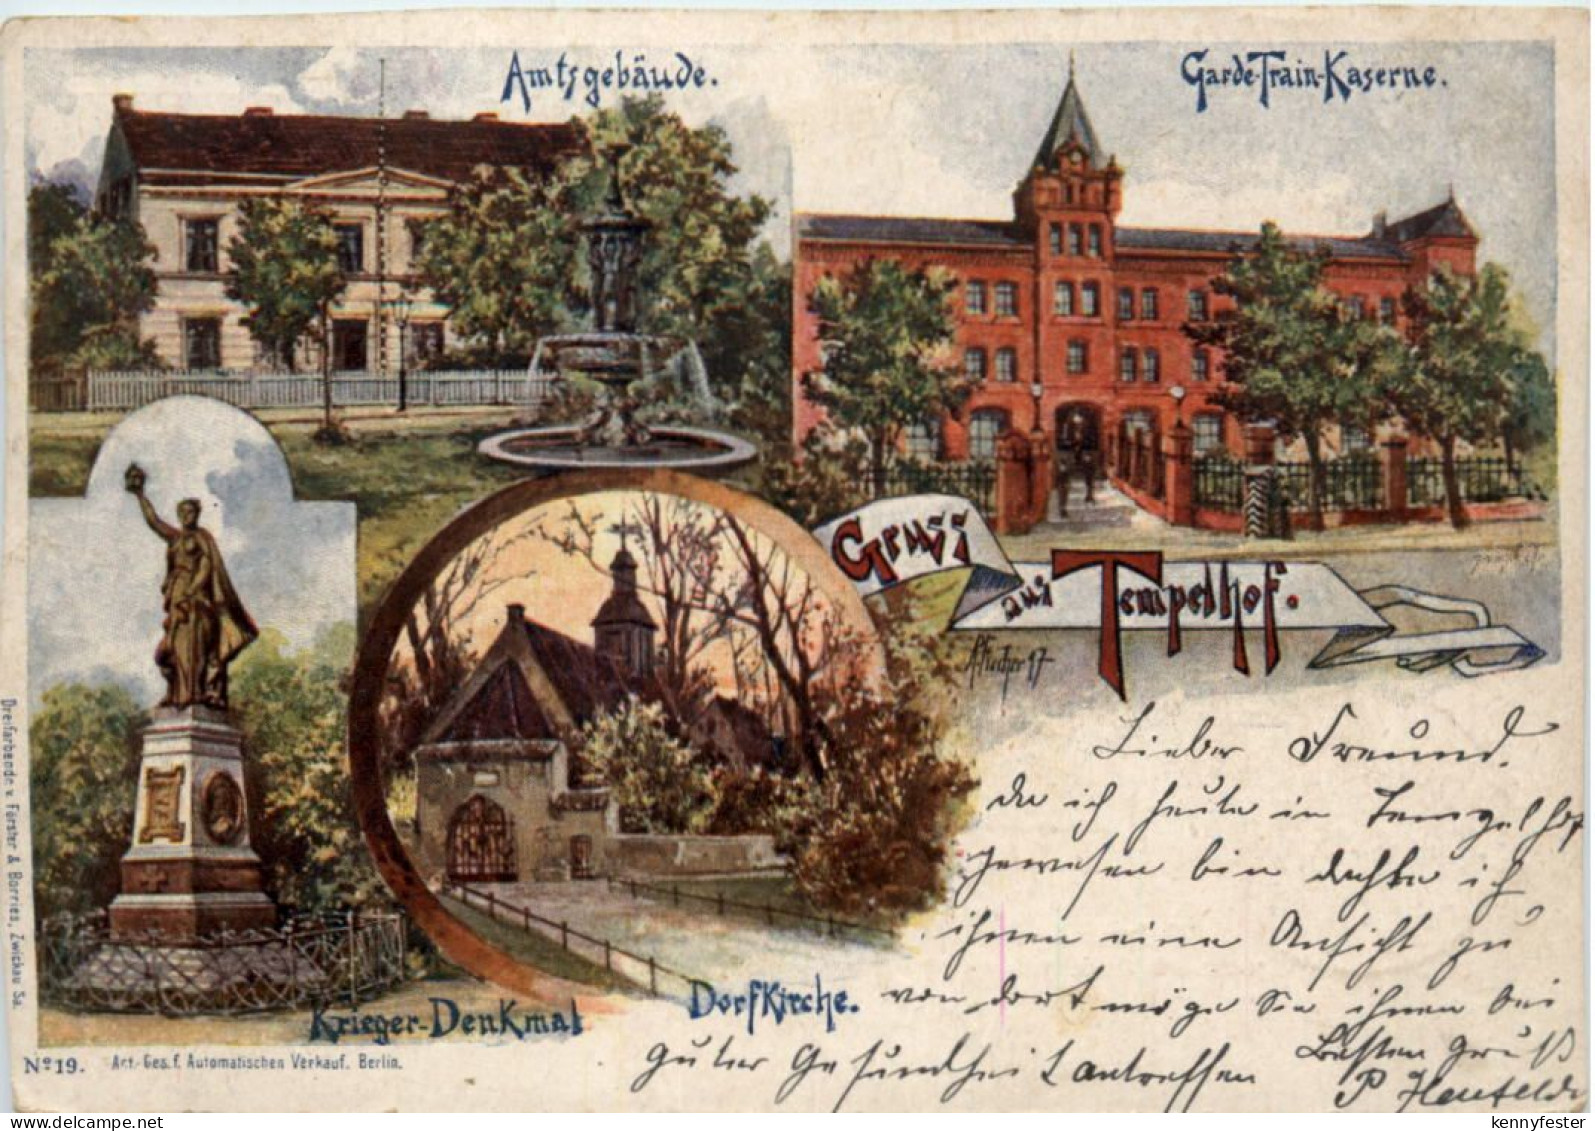 Amtsgebäude.
Garde-Train-Kaserne.
Gruss
aus Tempelhof.
Krieger-Denkmal
Dorfkirche.
Dreifarbendr. v. Förster & Borries, Zwickau Sa.
Nº 19. Act.-Ges. f. Automatischen Verkauf. Berlin.
Lieber Freund.
da ich heute in Tempelhof
gewesen bin dachte ich
ihnen eine Ansicht zu
von dort möge Sie ihnen bei
guter Gesundheit antreffen
Besten Gruß
P
kennyfester